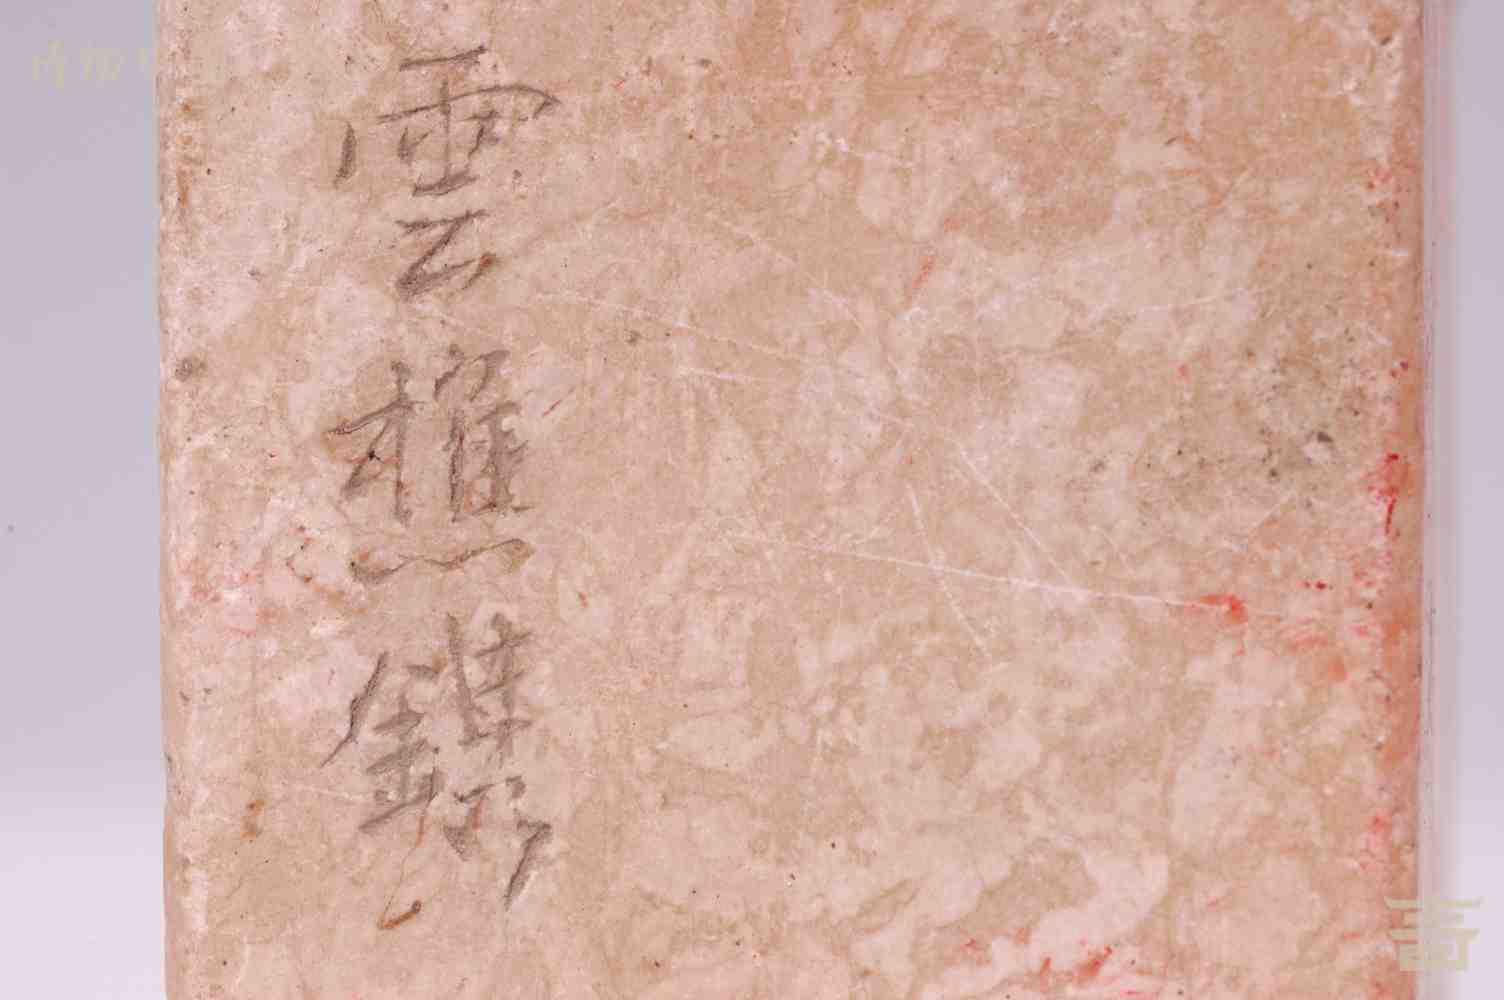 雲樵鐫